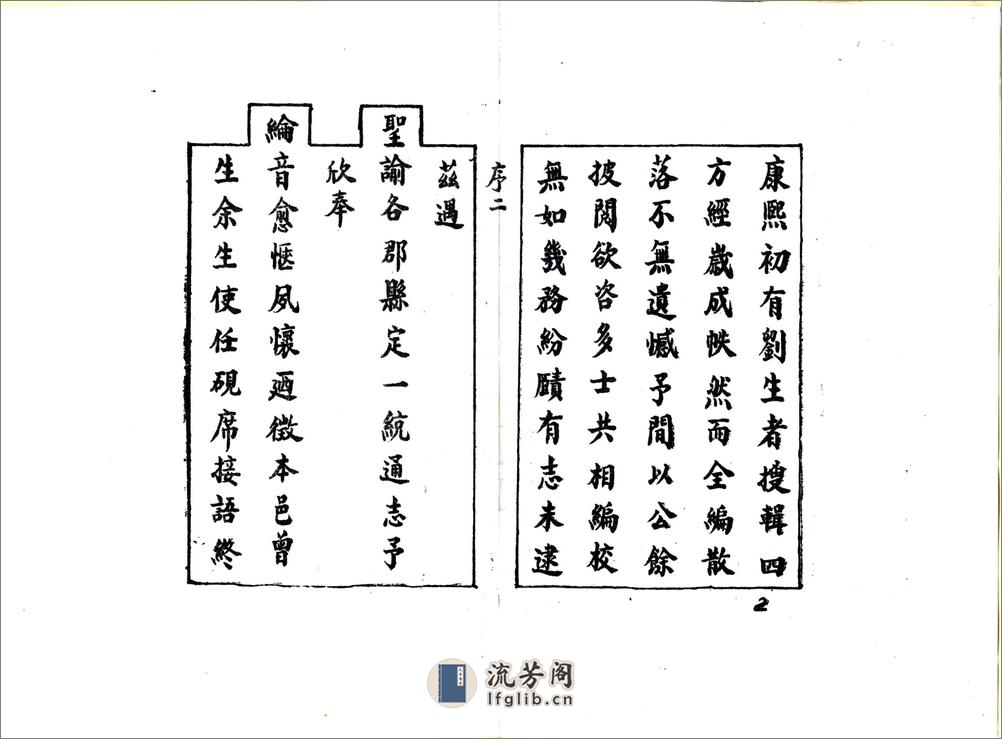 康熙初有劉生者搜輯四
方經歲成帙然而全編散
落不無遺憾予間以公餘
披閱欲咨多士共相編校
無如幾務紛賾有志未逮
2
序二
茲遇
聖諭各郡縣定一統通志予
欣奉
綸音愈惬夙懷廼徵本邑曾
生余生使任硯席接語終
流芳阁
lfglib.cn